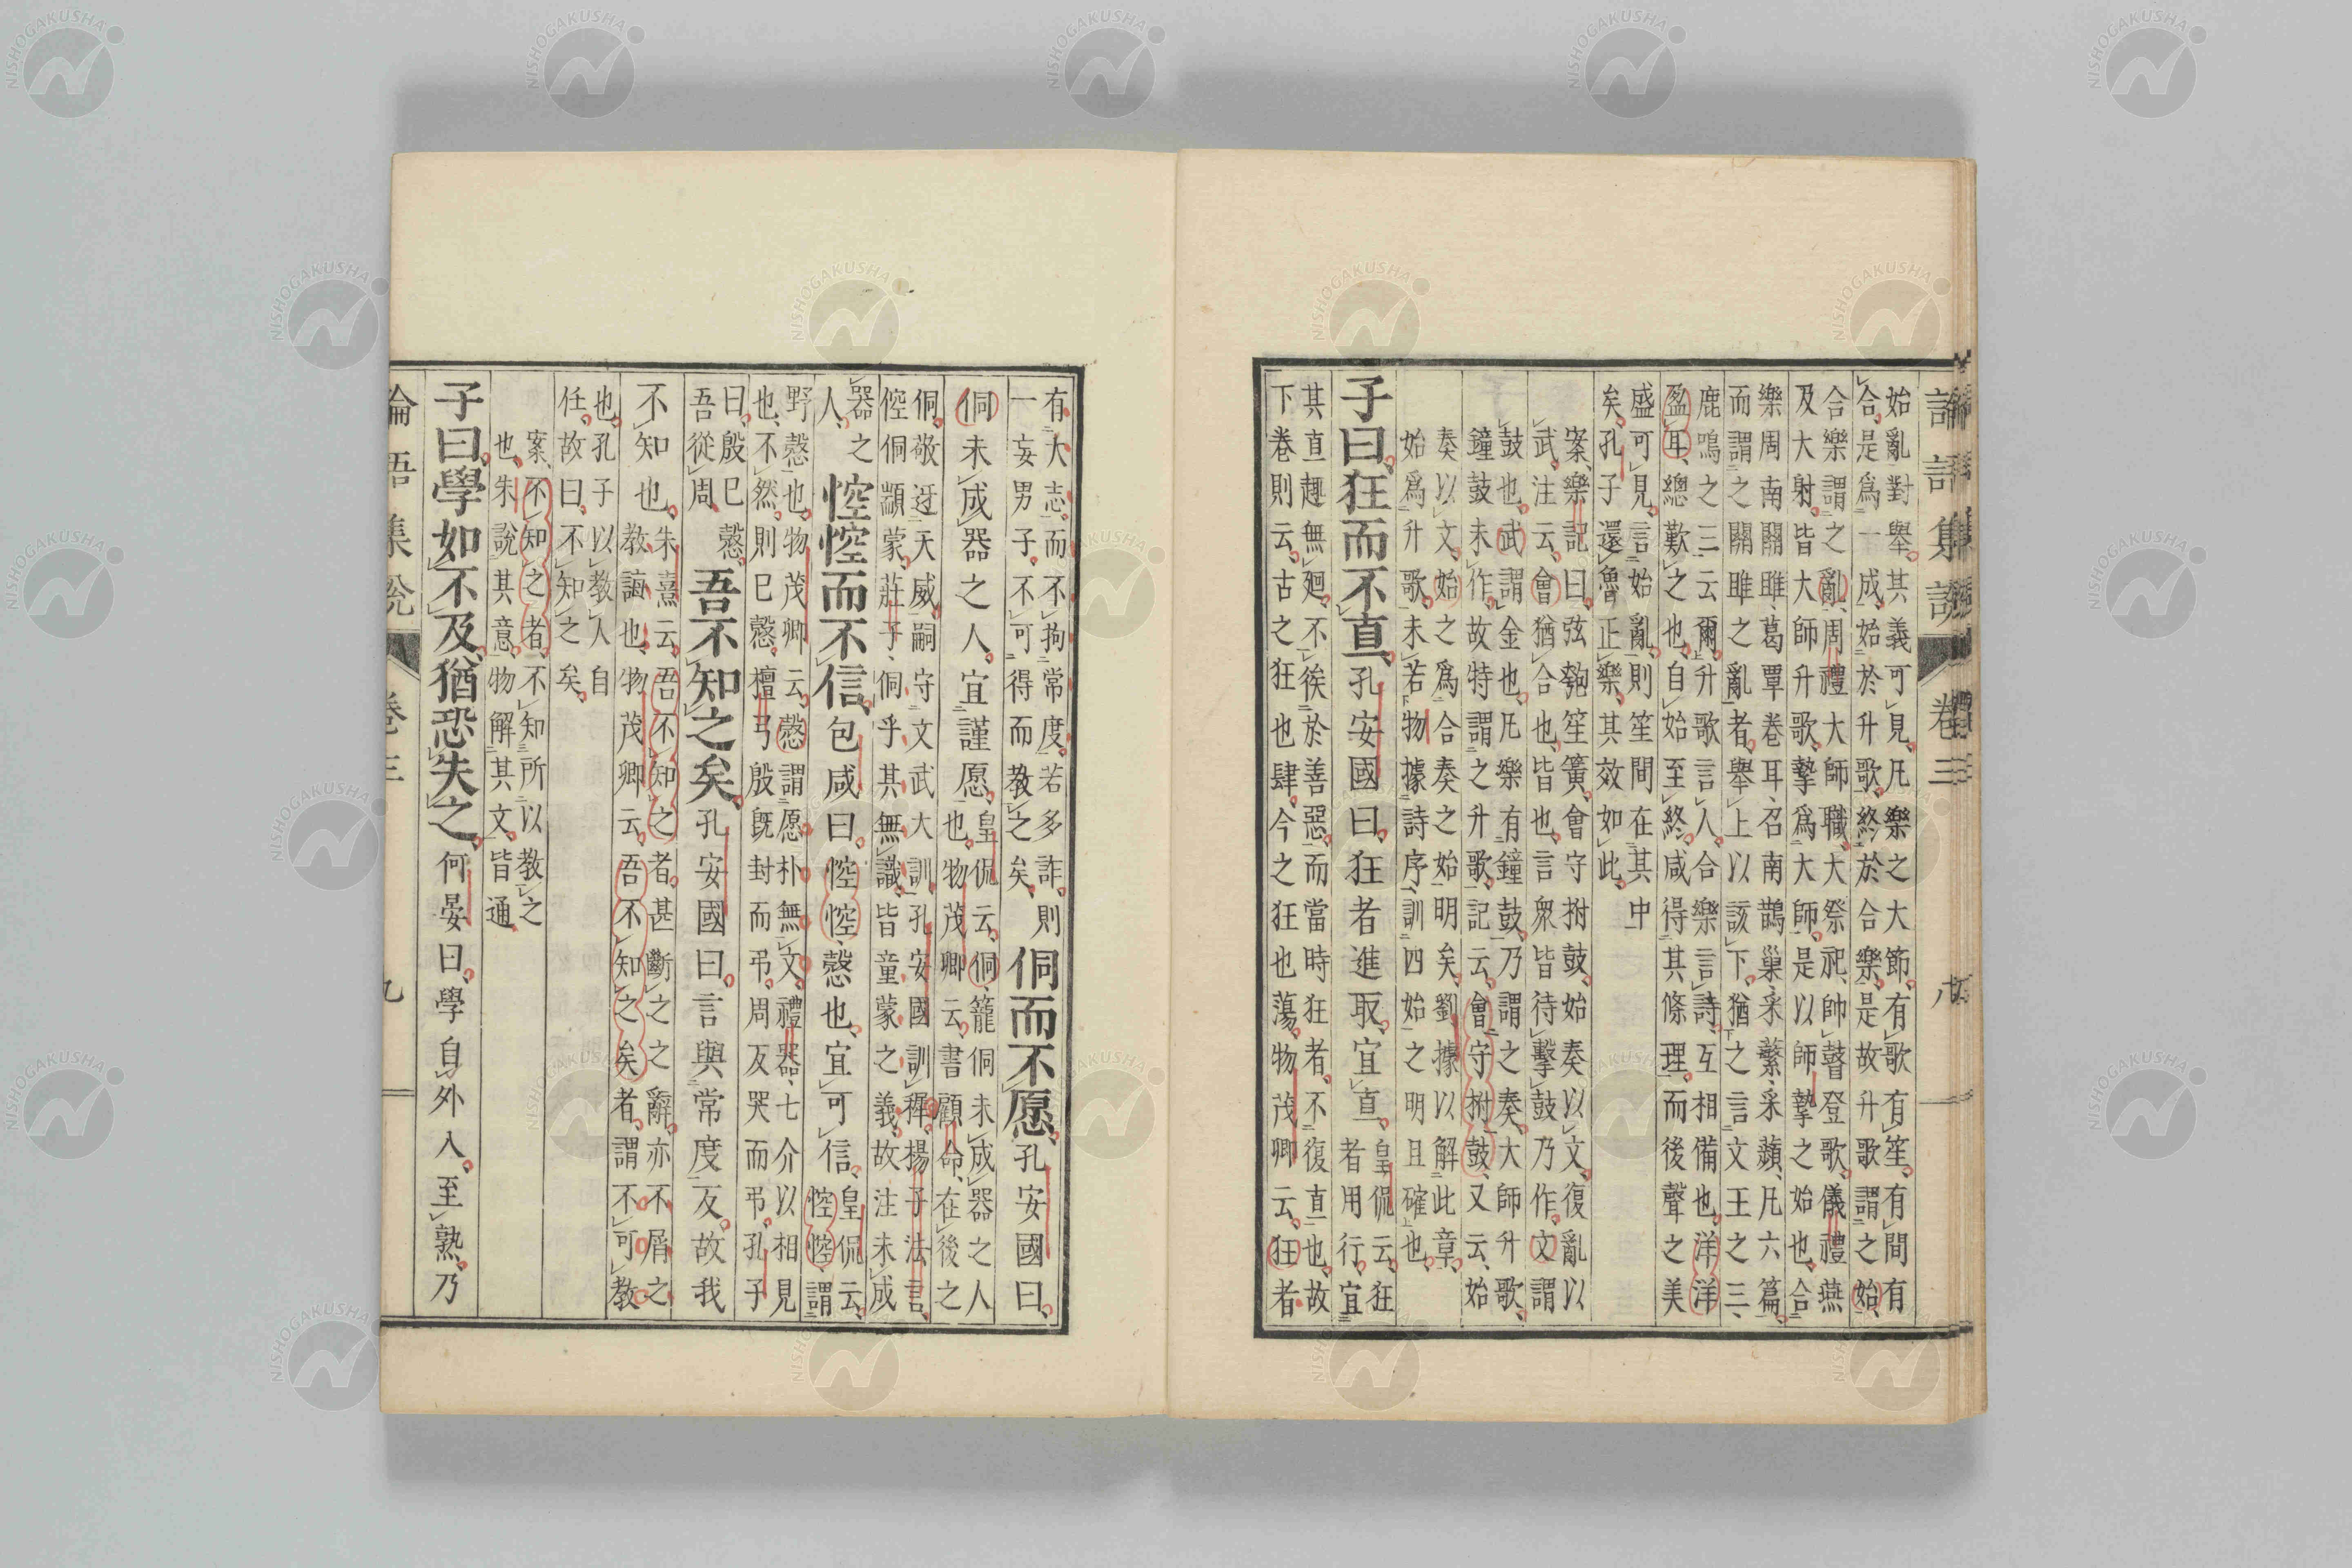 論語集說 卷三 八
始亂對舉其義可見凡樂之大節有歌有笙有間有
合是爲一成始於升歌終於合樂是故升歌謂之始
合樂謂之亂周禮大師職大祭祀帥瞽登歌儀禮燕
及大射皆大師升歌摯爲大師是以師摯之始也合
樂周南關雎葛覃卷耳召南鵲巢采蘩采蘋凡六篇
而謂之關雎之亂者舉上以該下猶之言文王之三
鹿鳴之三云爾升歌言人合樂言詩互相備也洋洋
盈耳總歎之也自始至終咸得其條理而後聲之美
盛可見言始亂則笙間在其中
矣孔子還魯正樂其效如此
案樂記曰弦匏笙簧會守拊鼓始奏以文復亂以
武注云會猶合也皆也言衆皆待擊鼓乃作文謂
鼓也武謂金也凡樂有鐘鼓乃謂之奏大師升歌
鐘鼓未作故特謂之升歌記云會守拊鼓又云始
奏以文始之爲合奏之始明矣劉據以解此章
始爲升歌未若物據詩序訓四始之明且確也
子曰狂而不直孔安國曰狂者進取宜直皇侃云狂
者用行宜
其直趣無廻不俟於善惡而當時狂者不復直也故
下卷則云古之狂也肆今之狂也蕩物茂卿云狂者
有大志而不拘常度若多詐則
一妄男子不可得而教之矣
侗而不愿孔安國曰
侗未成器之人宜謹愿皇侃云侗籠侗未成器之人
也物茂卿云書顧命在後之
侗敬迓天威嗣守文武大訓孔安國訓稺揚子法言
倥侗顓蒙莊子侗乎其無識皆童蒙之義故注未成
器之
人
悾悾而不信包咸曰悾悾愨也宜可信皇侃云
悾悾謂
野愨也物茂卿云愨謂愿朴無文禮器七介以相見
也不然則已愨檀弓殷旣封而弔周反哭而弔孔子
曰殷已愨
吾從周
吾不知之矣孔安國曰言與常度反故我
不知也朱熹云吾不知之者甚斷之之辭亦不屑之
教誨也物茂卿云吾不知之矣者謂不可教
也孔子以教人自
任故曰不知之矣
案不知之者不知所以教之
也朱說其意物解其文皆通
子曰學如不及猶恐失之何晏曰學自外入至熟乃
論語集說 卷三 九